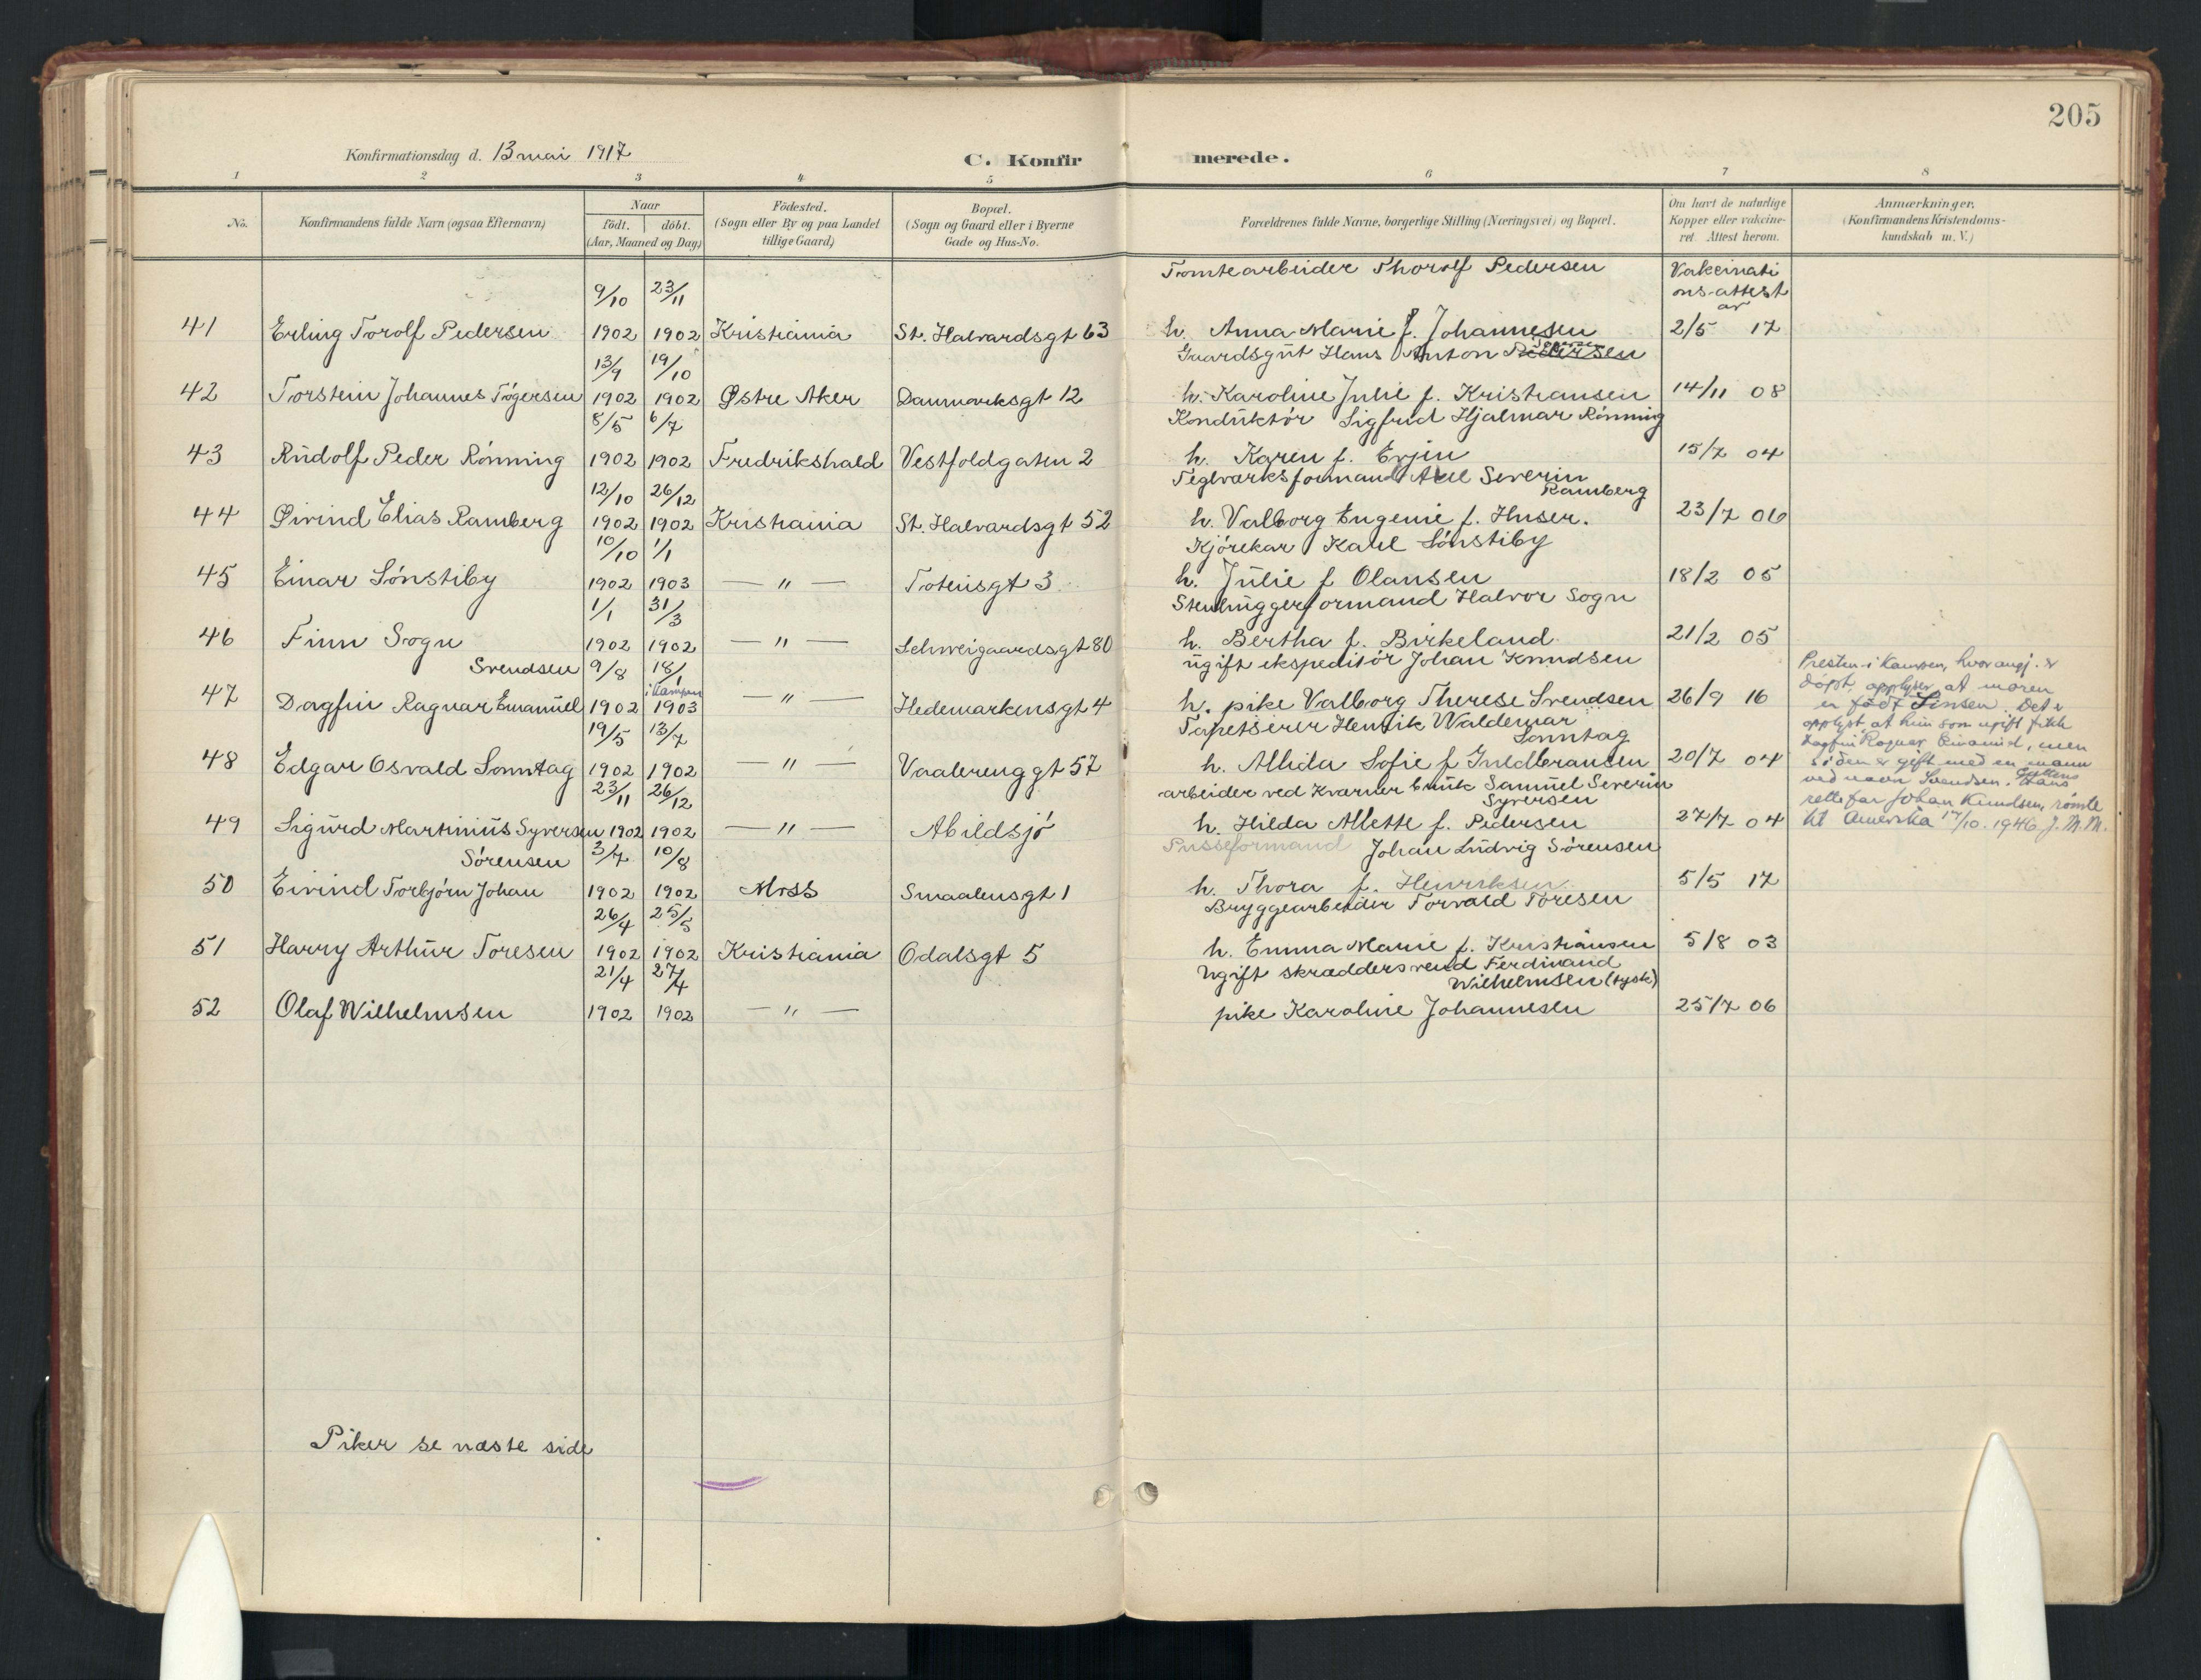 205
Konfirmationsdag d. 13 mai 1917
C. Konfirmerede.
1 2 3 4 5 6 7 8
No.
Konfirmandens fulde Navn (ogsaa Efternavn)
Naar
födt. döbt.
(Aar, Maaned og Dag)
Födested.
(Sogn eller By og paa Landet
tillige Gaard)
Bopæl.
(Sogn og Gaard eller i Byerne
Gade og Hus-No.
Forældrenes fulde Navne, borgerlige Stilling (Næringsvei) og Bopæl.
Om havt de naturlige
Kopper eller vakcine-
ret. Attest herom.
Anmærkninger.
(Konfirmandens Kristendoms-
kundskab m. V.)
9/10 23/11 Tomtearbeider Thorolf Pedersen Vakcinati
ons-attest
av
41 Erling Torolf Pedersen 1902 1902 Kristiania St. Halvardsgt 63 h. Anna Marie f. Johannesen 2/5 17
13/9 19/10 Gaardsgut Hans Anton Pedersen
42 Torstein Johannes Tögersen 1902 1902 Østre Aker Danmarksgt 12 h. Karoline Julie f. Kristiansen 14/11 08
8/5 6/7 Konduktör Sigfrid Hjalmar Rönning
43 Rudolf Peder Rönning 1902 1902 Fredrikshald Vestfoldgaten 2 h. Karen f. Evjen 15/7 04
12/10 26/12 Teglværksformand Axel Severin
Ramberg
44 Øivind Elias Ramberg 1902 1902 Kristiania St. Halvardsgt 52 h. Valborg Eugenie f. Huser. 23/7 06
10/10 1/1 Kjörekar Karl Sönstiby
45 Einar Sönstiby 1902 1903 — " — Totensgt 3 h. Julie f Olausen 18/2 05
1/1 31/3 Stenhuggerformand Halvor Sogn
46 Finn Sogn 1902 1902 — " — Schweigaardsgt 80 h. Bertha f. Birkeland 21/2 05
Svendsen 9/8 18/1 ugift ekspeditör Johan Knudsen
i Kampen
47 Dagfin Ragnar Emanuel 1902 1903 — " — Hedemarkensgt 4 h. pike Valborg Therese Svendsen 26/9 16
Presten i Kampen, hvor angj. er
döpt, opplyser at moren
er født Jensen. Det er
opplyst at hun som ugift fikk
Dagfin Ragnar Emanuel, men
siden er gift med en mann
ved navn Svendsen. Guttens
rette far Johan Knudsen, römte
til Amerika 17/10. 1946 J. M. M.
19/5 13/7 Tapetserer Henrik Waldemar
Sonntag
48 Edgar Osvald Sonntag 1902 1902 — " — Vaalerenggt 57 h. Alhida Sofie f Guldbransen 20/7 04
23/11 26/12 arbeider ved Kværner bruk Samuel Severin
Syversen
49 Sigurd Martinius Syversen 1902 1902 — " — Abildsjö h. Hilda Alette f. Pedersen 27/7 04
Sörensen 3/7 10/8 Pusseformand Johan Ludvig Sörensen
50 Eivind Torbjörn Johan 1902 1902 Moss Smaalensgt 1 h. Thora f. Henriksen 5/5 17
26/4 25/5 Bryggearbeider Torvald Toresen
51 Harry Arthur Toresen 1902 1902 Kristiania Odalsgt 5 h. Emma Marie f. Kristiansen 5/8 03
21/4 27/4 Ugift skræddersvend Ferdinand
Wilhelmsen (tysk)
52 Olaf Wilhelmsen 1902 1902 — " — pike Karoline Johannesen 25/7 06
Piker se næste side